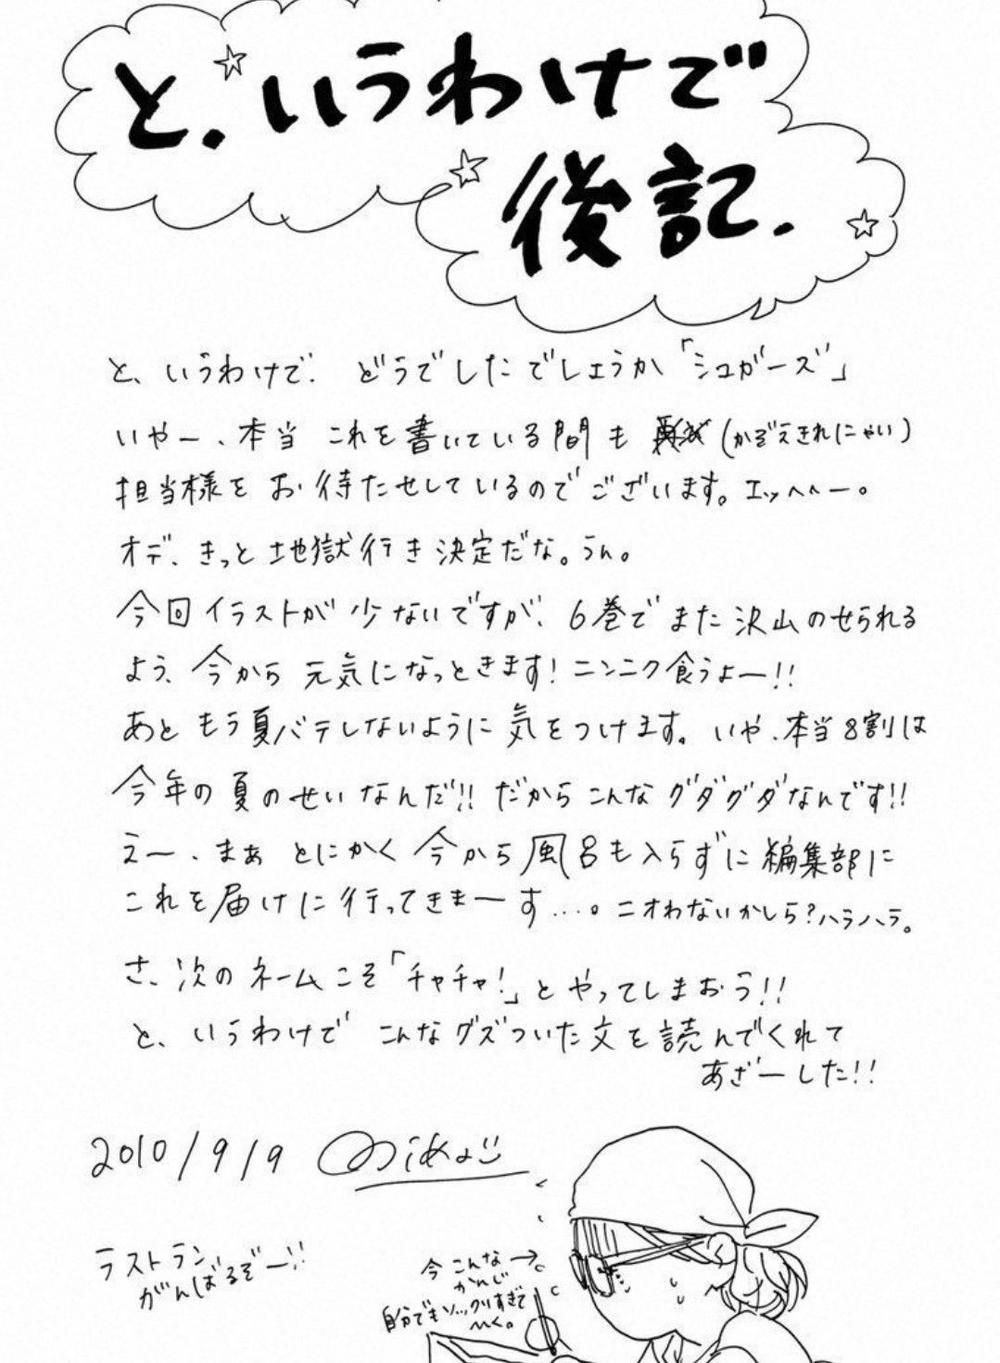 と、いうわけで
後記.
と、いうわけで. どうでしたでしょうか「シュガーズ」
いやー、本当 これを書いている間も (かぞえきれにゃい)
担当様を お待たせしているのでございます。エッヘヘー。
オデ、きっと 地獄行き決定だな。うん。
今回イラストが 少ないですが、6巻で また 沢山のせられる
よう、今から 元気になっときます!ニンニク食うよー!!
あと もう夏バテしないように 気をつけます。いや、本当8割は
今年の夏のせいなんだ!!だから こんな グダグダなんです!!
えー、まぁ とにかく 今から 風呂も入らずに 編集部に
これを届けに行ってきまーす…。ニオわないかしら?ハラハラ。
さ、次の ネームこそ「チャチャ!」と やってしまおう!!
と、いうわけで こんなグズついた文を読んでくれて
あざーした!!
2010/9/9
ラストラン
がんばるぞー!!
今 こんな→
かんじ
自分でもソックリすぎて